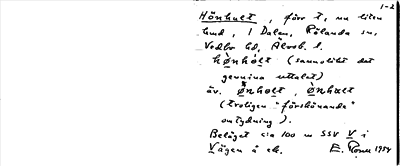 1-2
Hönhult, förr t, nu liten
lund, i Dalen, Rölanda sn,
Vedbo hd, Älvsb. l.
hö̀nhòlt (sannolikt det
genuina uttalet)
äv. ø̀nholt, ø̀nhalt
(troligen "förskönande"
omtydning).
Beläget c:a 100 m SSV V i
Vägen å ek. E. Rosen 1954